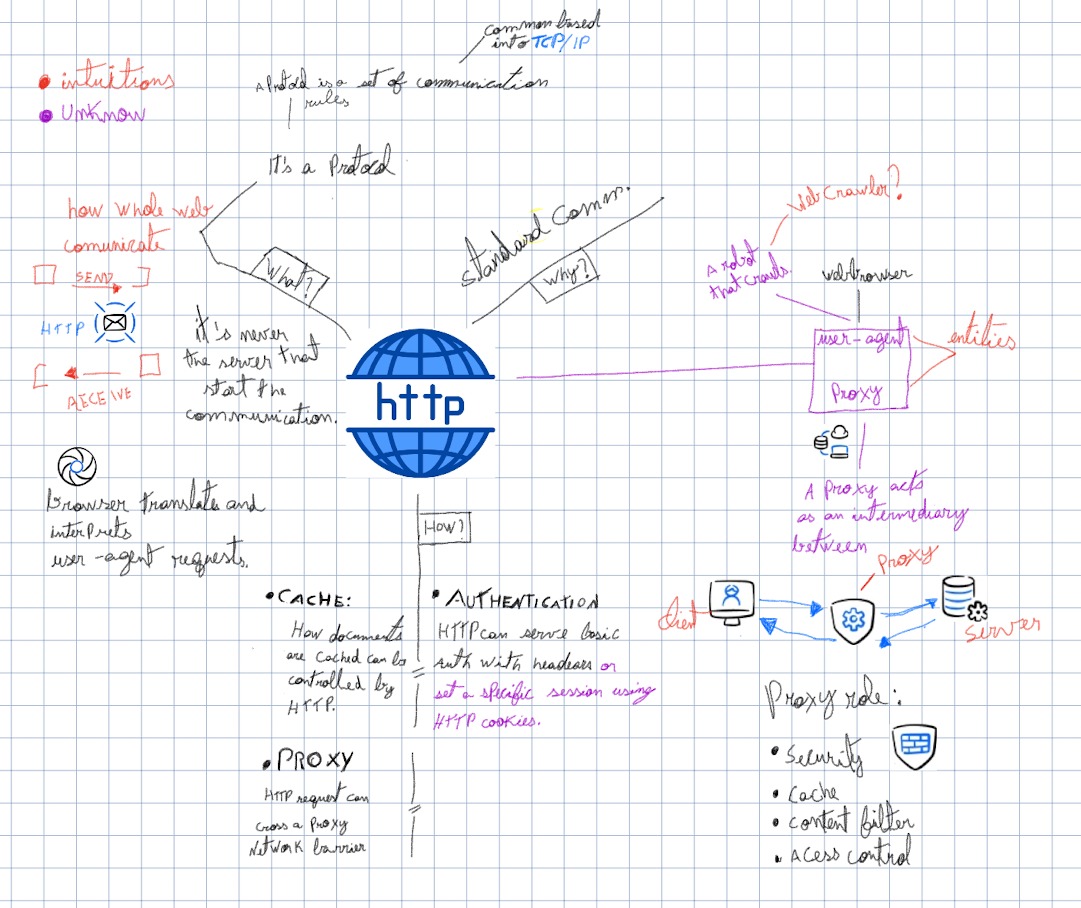 common based
into TCP/IP
• intuitions
• Unknow
A Protocol is a set of communication
rules
It's a Protocol
how whole web
comunicate
SEND
HTTP
RECEIVE
What?
it's never
the server that
start the
communication.
Standard Comm.
Why?
http
Web Crawler?
A robot
that crawls.
webbrowser
user-agent
Proxy
entities
A Proxy acts
as an intermediary
between
Proxy
Client
Server
Browser translate and
interprets
user-agent requests.
How?
• CACHE:
How documents
are cached can be
controlled by
HTTP.
• AUTHENTICATION
HTTP can serve basic
auth with headears or
set a specific session using
HTTP cookies.
• PROXY
HTTP request can
cross a Proxy
Network barrier
Proxy role:
• Security
• Cache
• Content filter
• Acess control